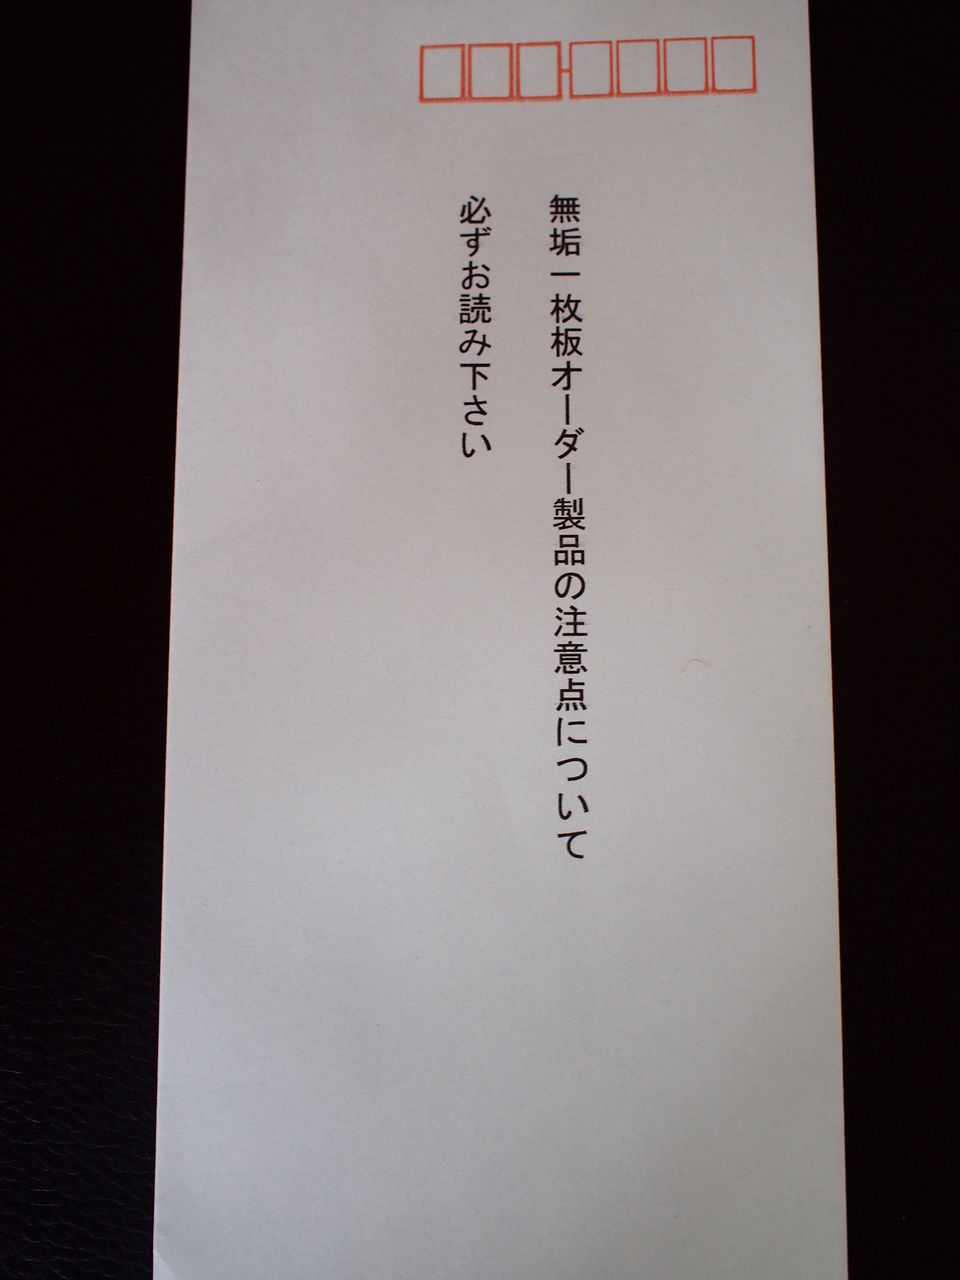 無垢一枚板オーダー製品の注意点について
必ずお読み下さい